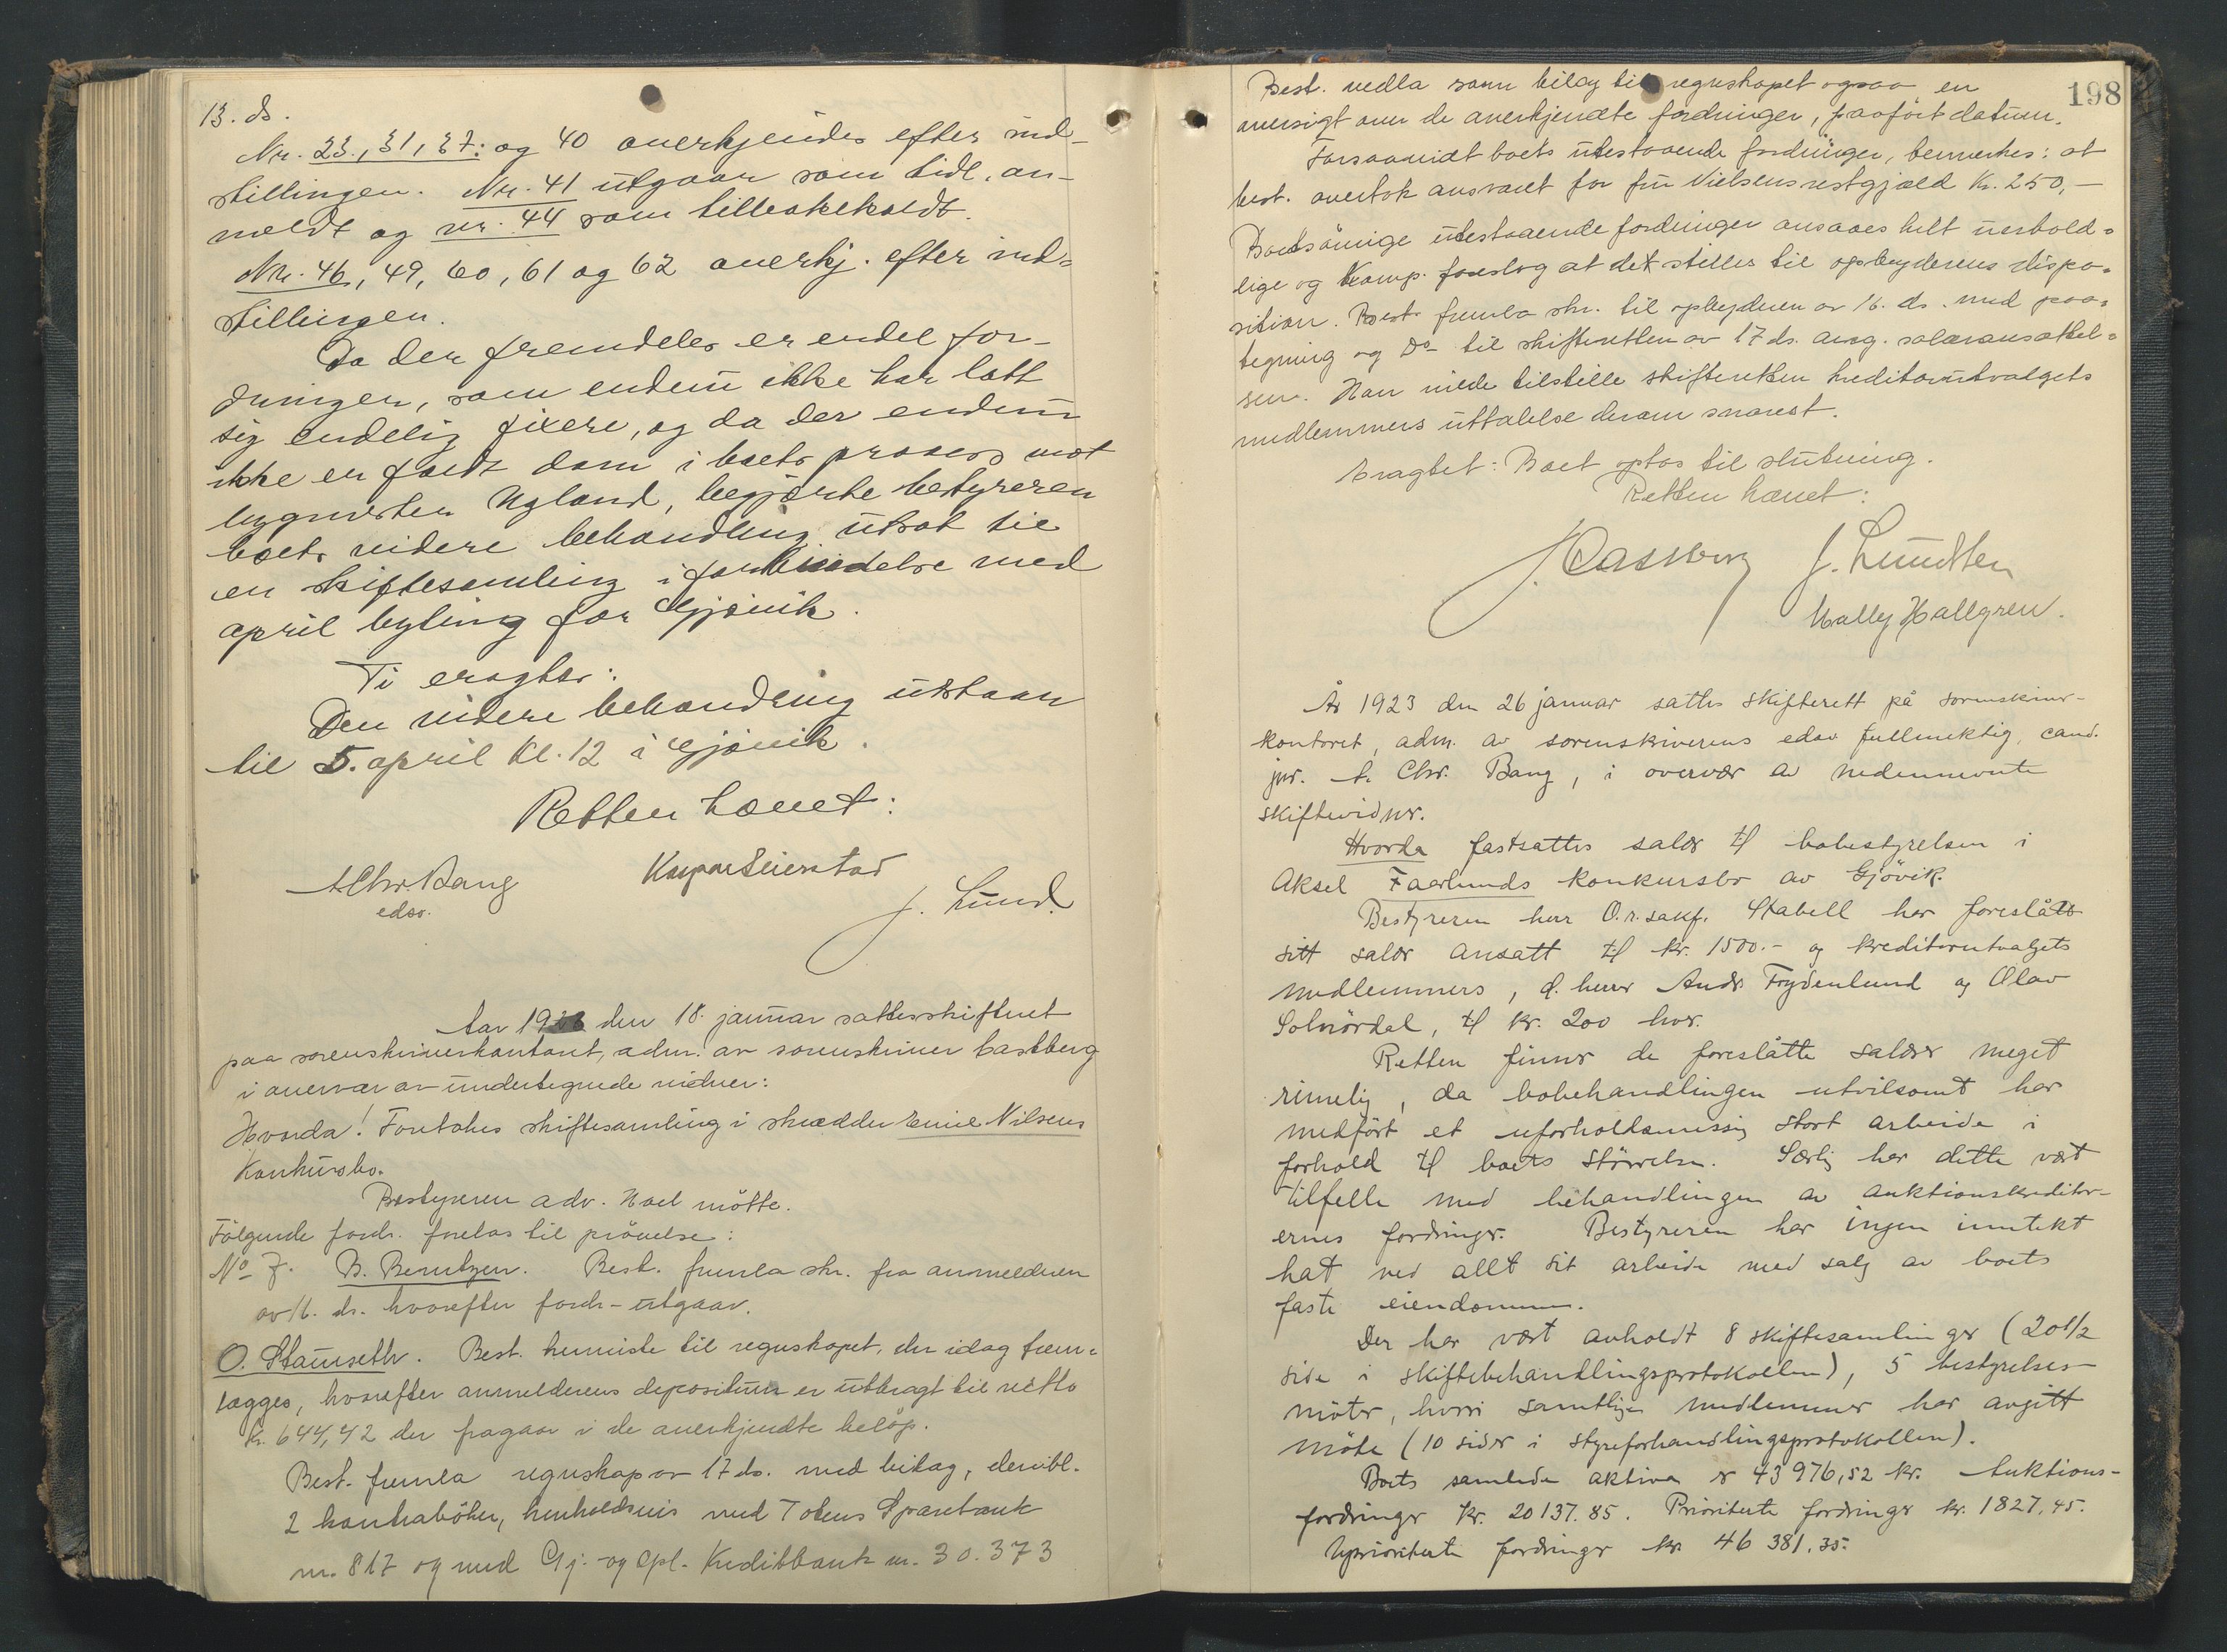 13. ds.
Nr. 23., 31, 37: og 40 anerkjendes efter ind-
stillingen. Nr. 41 utgaar som tidl. an-
meldt og nr. 44 som tilbakekaldt.
Nr. 46, 49, 60, 61 og 62 anerkj. efter ind-
stillingen.
Da der fremdeles er endel for-
dringer, som endnu ikke har latt
sig endelig fixere, og da der endnu
ikke er faldt dom i boets proces mot
bygmester Ugland, begjærte bestyreren
boets videre behandling utsat til
en skiftesamling i forbindelse med
april byting for Gjøvik.
Ti eragtes:
Den videre behandling utstaar
til 5. april kl. 12 i Gjøvik.
Retten hævet:
A Chr. Bang
edsv.
Kaspar Seierstad
J. Lund.
Aar 19 den 18. januar sattes skifteret
paa sorenskriverkontoret, adm. av sorenskriver Castberg
i overvær av undertegnede vidner:
Hvorda! Foretokes skiftesamling i skrædder Emil Nilsens
Konkursbo.
Bestyreren adv. Noel mötte.
Fölgende fordr. foretas til prövelse:
No 7. B. Berntzen. Best. fremla skr. fra anmelderen
av 16. ds. hvorefter fordr. utgaar.
O. Stamseth. Best. henviste til regnskapet, der idag frem-
lægges, hvorefter anmelderens depositum er utbragt til netto
Kr. 644,42 der fragaar i de anerkjendte belöp.
Best. fremla regnskap av 17 ds. med bilag, deribl.
2 kontraböker, henholdsvis med Totens Sparebank
nr. 817 og med Gj. og Opl. Kreditbank nr. 30.373
198
Best. vedla som bilag til regnskapet ogsaa en
oversigt over de anerkjendte fordringer, paafört datum.
Forsaavidt boets utestaaende fordringer, bemerkes: at
best. overtok ansvaret for fru Nielsens restgjæld Kr. 250,-
Boets övrige utestaaende fordringer ansaaes helt uerhold-
lige og komp. foreslog at det stilles til opbyderens dispo-
sition. Best. fremla skr. til opbyderen av 16. ds. med paa-
tegning og Do til skifteretten av 17 ds. ang. salæransættel-
sen. Han vilde tilstille skifteretten kreditorutvalgets
medlemmers uttalelse derom snarest.
Eragtet: Boet optas til slutning.
Retten hævet:
J Castberg J. Lundsten
Mally Hallgren.
År 1923 den 26 januar sattes skifterett på sorenskriver-
kontoret, adm. av sorenskriverens edsv. fullmektig, cand.
jur. A. Chr. Bang, i overvær av nedennevnte
skiftevidner.
Hvorda fastsattes salær til bobestyrelsen i
Aksel Faerlunds konkursbo av Gjövik.
Bestyreren herr O.r.sakf. Stabell har foreslått
sitt salær ansatt til kr. 1500.- og kreditorutvalgets
medlemmers, d. herrer Andr. Frydenlund og Olav
Solnördal, til kr. 200 hver.
Retten finner de foreslåtte salærer meget
rimelig, da bobehandlingen utvilsomt har
medfört et uforholdsmessig stort arbeide i
forhold til boets störrelse. Særlig har dette vært
tilfelle med behandlingen av auktionskreditor-
ernes fordringer. Bestyreren har ingen inntekt
hat ved allt sit arbeide med salg av boets
faste eiendommer.
Der har vært avholdt 8 skiftesamlinger (20 1/2
side i skiftebehandlingsprotokollen), 5 bestyrelses-
möter, hvori samtlige medlemmer har avgitt
möte (10 sider i styreforhandlingsprotokollen).
Boets samlede aktiva er 43 976,52 kr. Auktions-
fordringer kr. 20 137.85. Prioriterte fordringer kr. 1827,45.
Uprioriterte fordringer kr. 46 381.35.